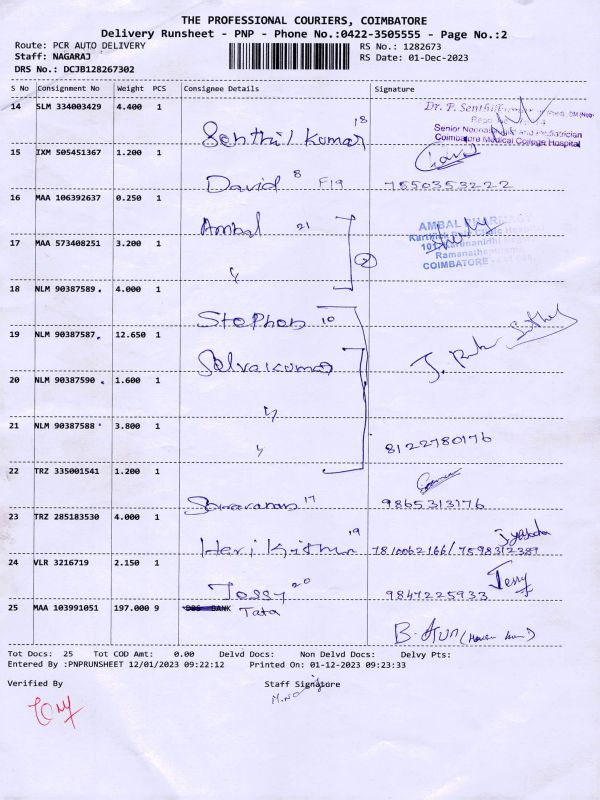 THE PROFESSIONAL COURIERS, COIMBATORE
Delivery Runsheet - PNP - Phone No.:0422-3505555 - Page No.:2
Route: PCR AUTO DELIVERY RS No.: 1282673
Staff: NAGARAJ RS Date: 01-Dec-2023
DRS No.: DCJB128267302
S No Consignment No Weight PCS Consignee Details Signature
14 SLM 334003429 4.400 1
Senthil Kumar 18
Dr. P. Senthil
Senior Neonatologist and Pediatrician
Coimbatore Medical College Hospital
15 IXM 505451367 1.200 1
David 8 F19 7550353222
16 MAA 106392637 0.250 1
Ambal 21
AMBAL PHARMACY
Ramanathapuram
COIMBATORE
17 MAA 573408251 3.200 1
"
2
18 NLM 90387589. 4.000 1
Stephen 10
19 NLM 90387587. 12.650 1
Selvakumar
20 NLM 90387590 . 1.600 1
"
21 NLM 90387588 . 3.800 1
" 8122780176
22 TRZ 335001541 1.200 1
Saravanan 17 9865313176
23 TRZ 285183530 4.000 1
Hari 19 7598312389
24 VLR 3216719 2.150 1
Jossy 20 9847225933 Jerry
25 MAA 103991051 197.000 9 DBS BANK Tata
B. Arun
Tot Docs: 25 Tot COD Amt: 0.00 Delvd Docs: Non Delvd Docs: Delvy Pts:
Entered By :PNPRUNSHEET 12/01/2023 09:22:12 Printed On: 01-12-2023 09:23:33
Verified By Staff Signature